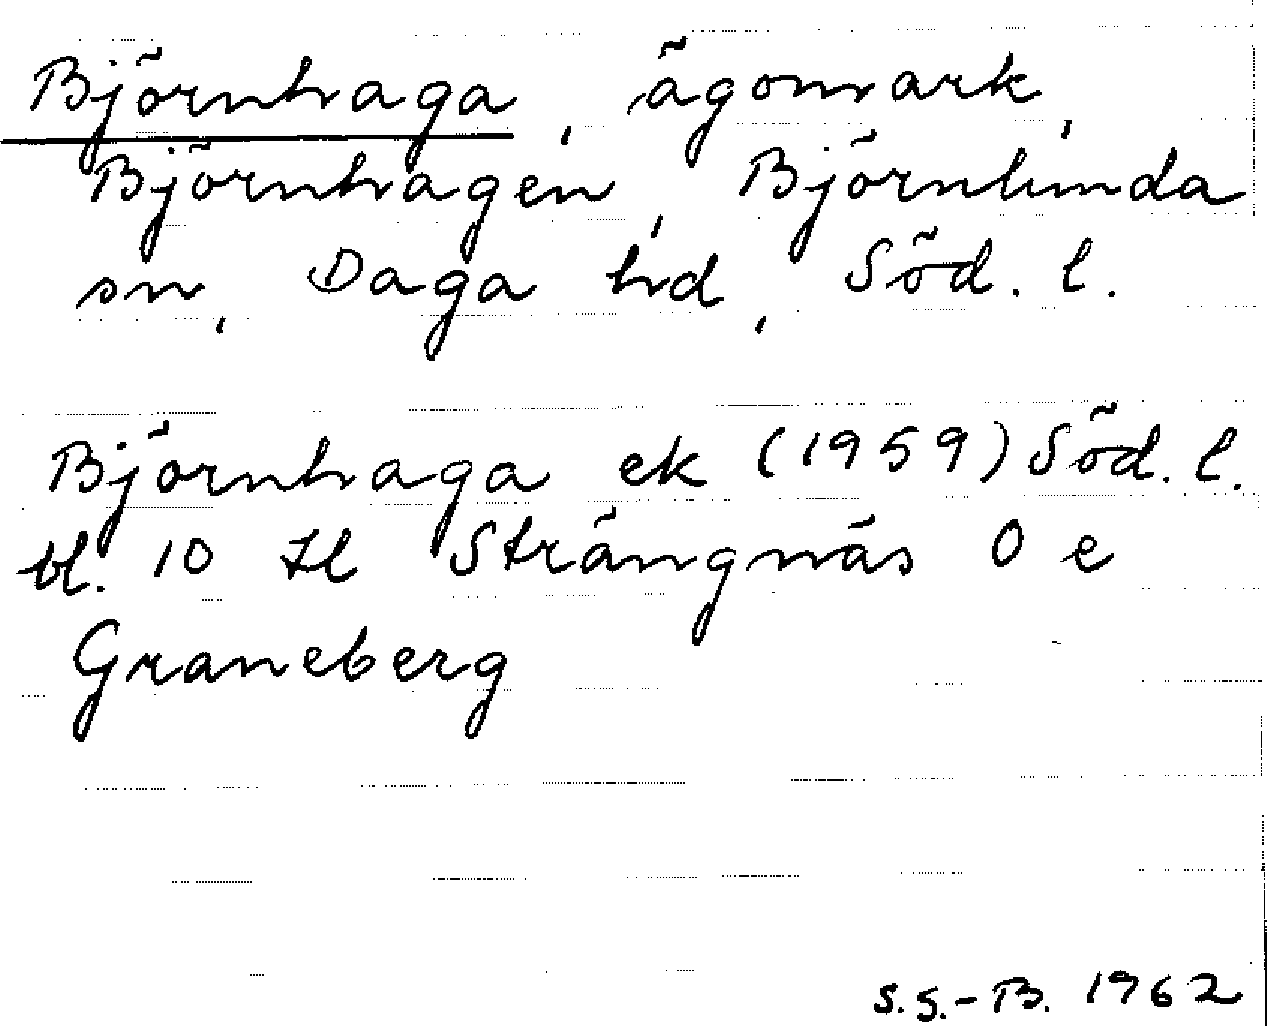 Björnhaga, ägomark,
Björnhagen, Björnlunda
sn, Daga hd, Söd. l.
Björnhaga ek (1959) Söd. l.
bl. 10 Il Strängnäs O e
Graneberg
S.S.-B. 1962